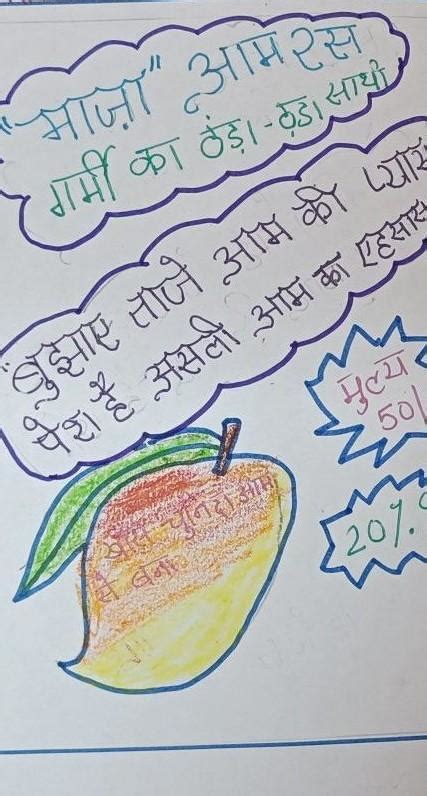 "माज़ा" आमरस
गर्मी का ठंडा-ठंडा साथी
"बुझाए ताजे आम की प्यास
पेश है असली आम का एहसास
मुल्य
50/
20%
चुनिंदा आम
से बना
!!